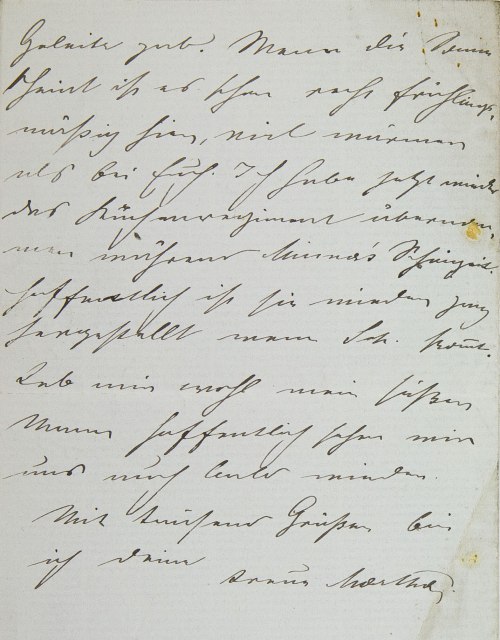 Geleite gab. Wenn die Sonne
scheint ist es schon recht frühlings-
mäßig hier, viel wärmer
als bei Euch. Ich habe jetzt wieder
das Küchenregiment übernom-
men während Minna's
hoffentlich ist sie wieder ganz
hergestellt wenn Sch. kommt.
Leb mir wohl mein süßer
Mann hoffentlich sehen wir
uns noch bald wieder.
Mit tausend Grüßen bin
ich deine
treue Martha.